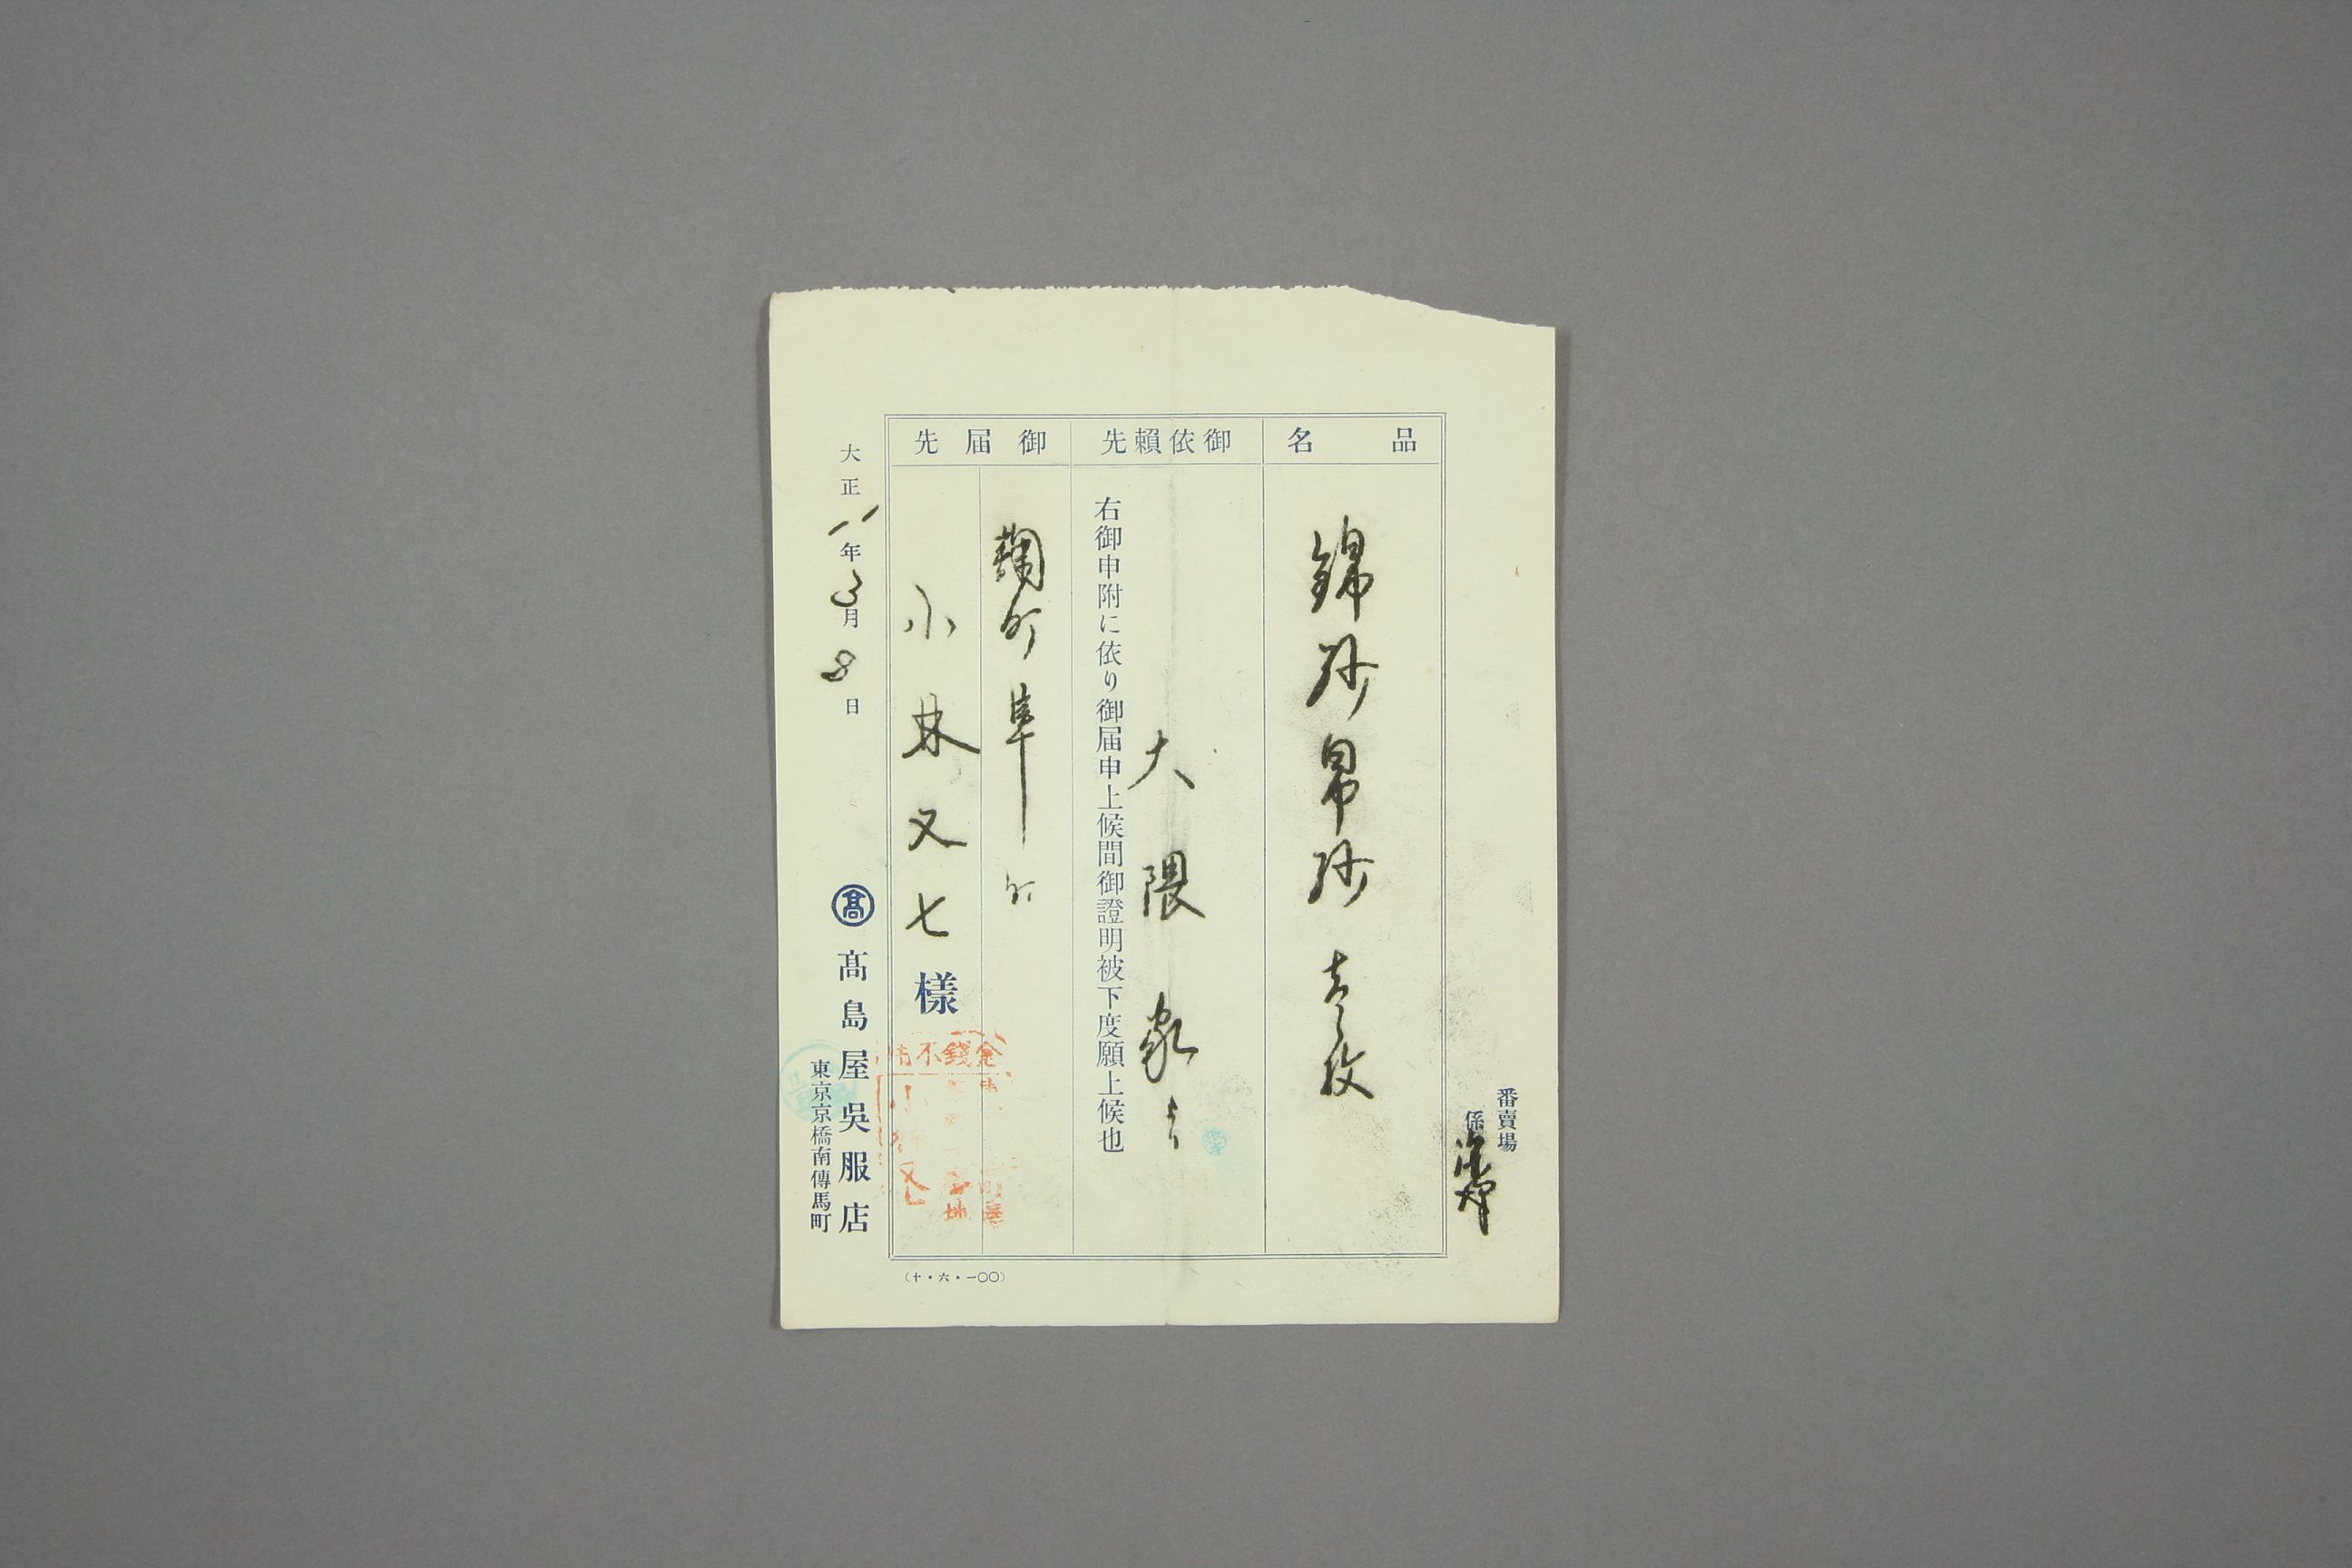 番賣場
係
品名
錦紗帛紗 壱枚
御依賴先
大隈家より
右御申附に依り御届申上候間御證明被下度願上候也
御届先
麹町隼町
小林又七樣
金錢不
大正八年3月8日
髙
髙島屋吳服店
東京京橋南傳馬町
（十・六・一〇〇）